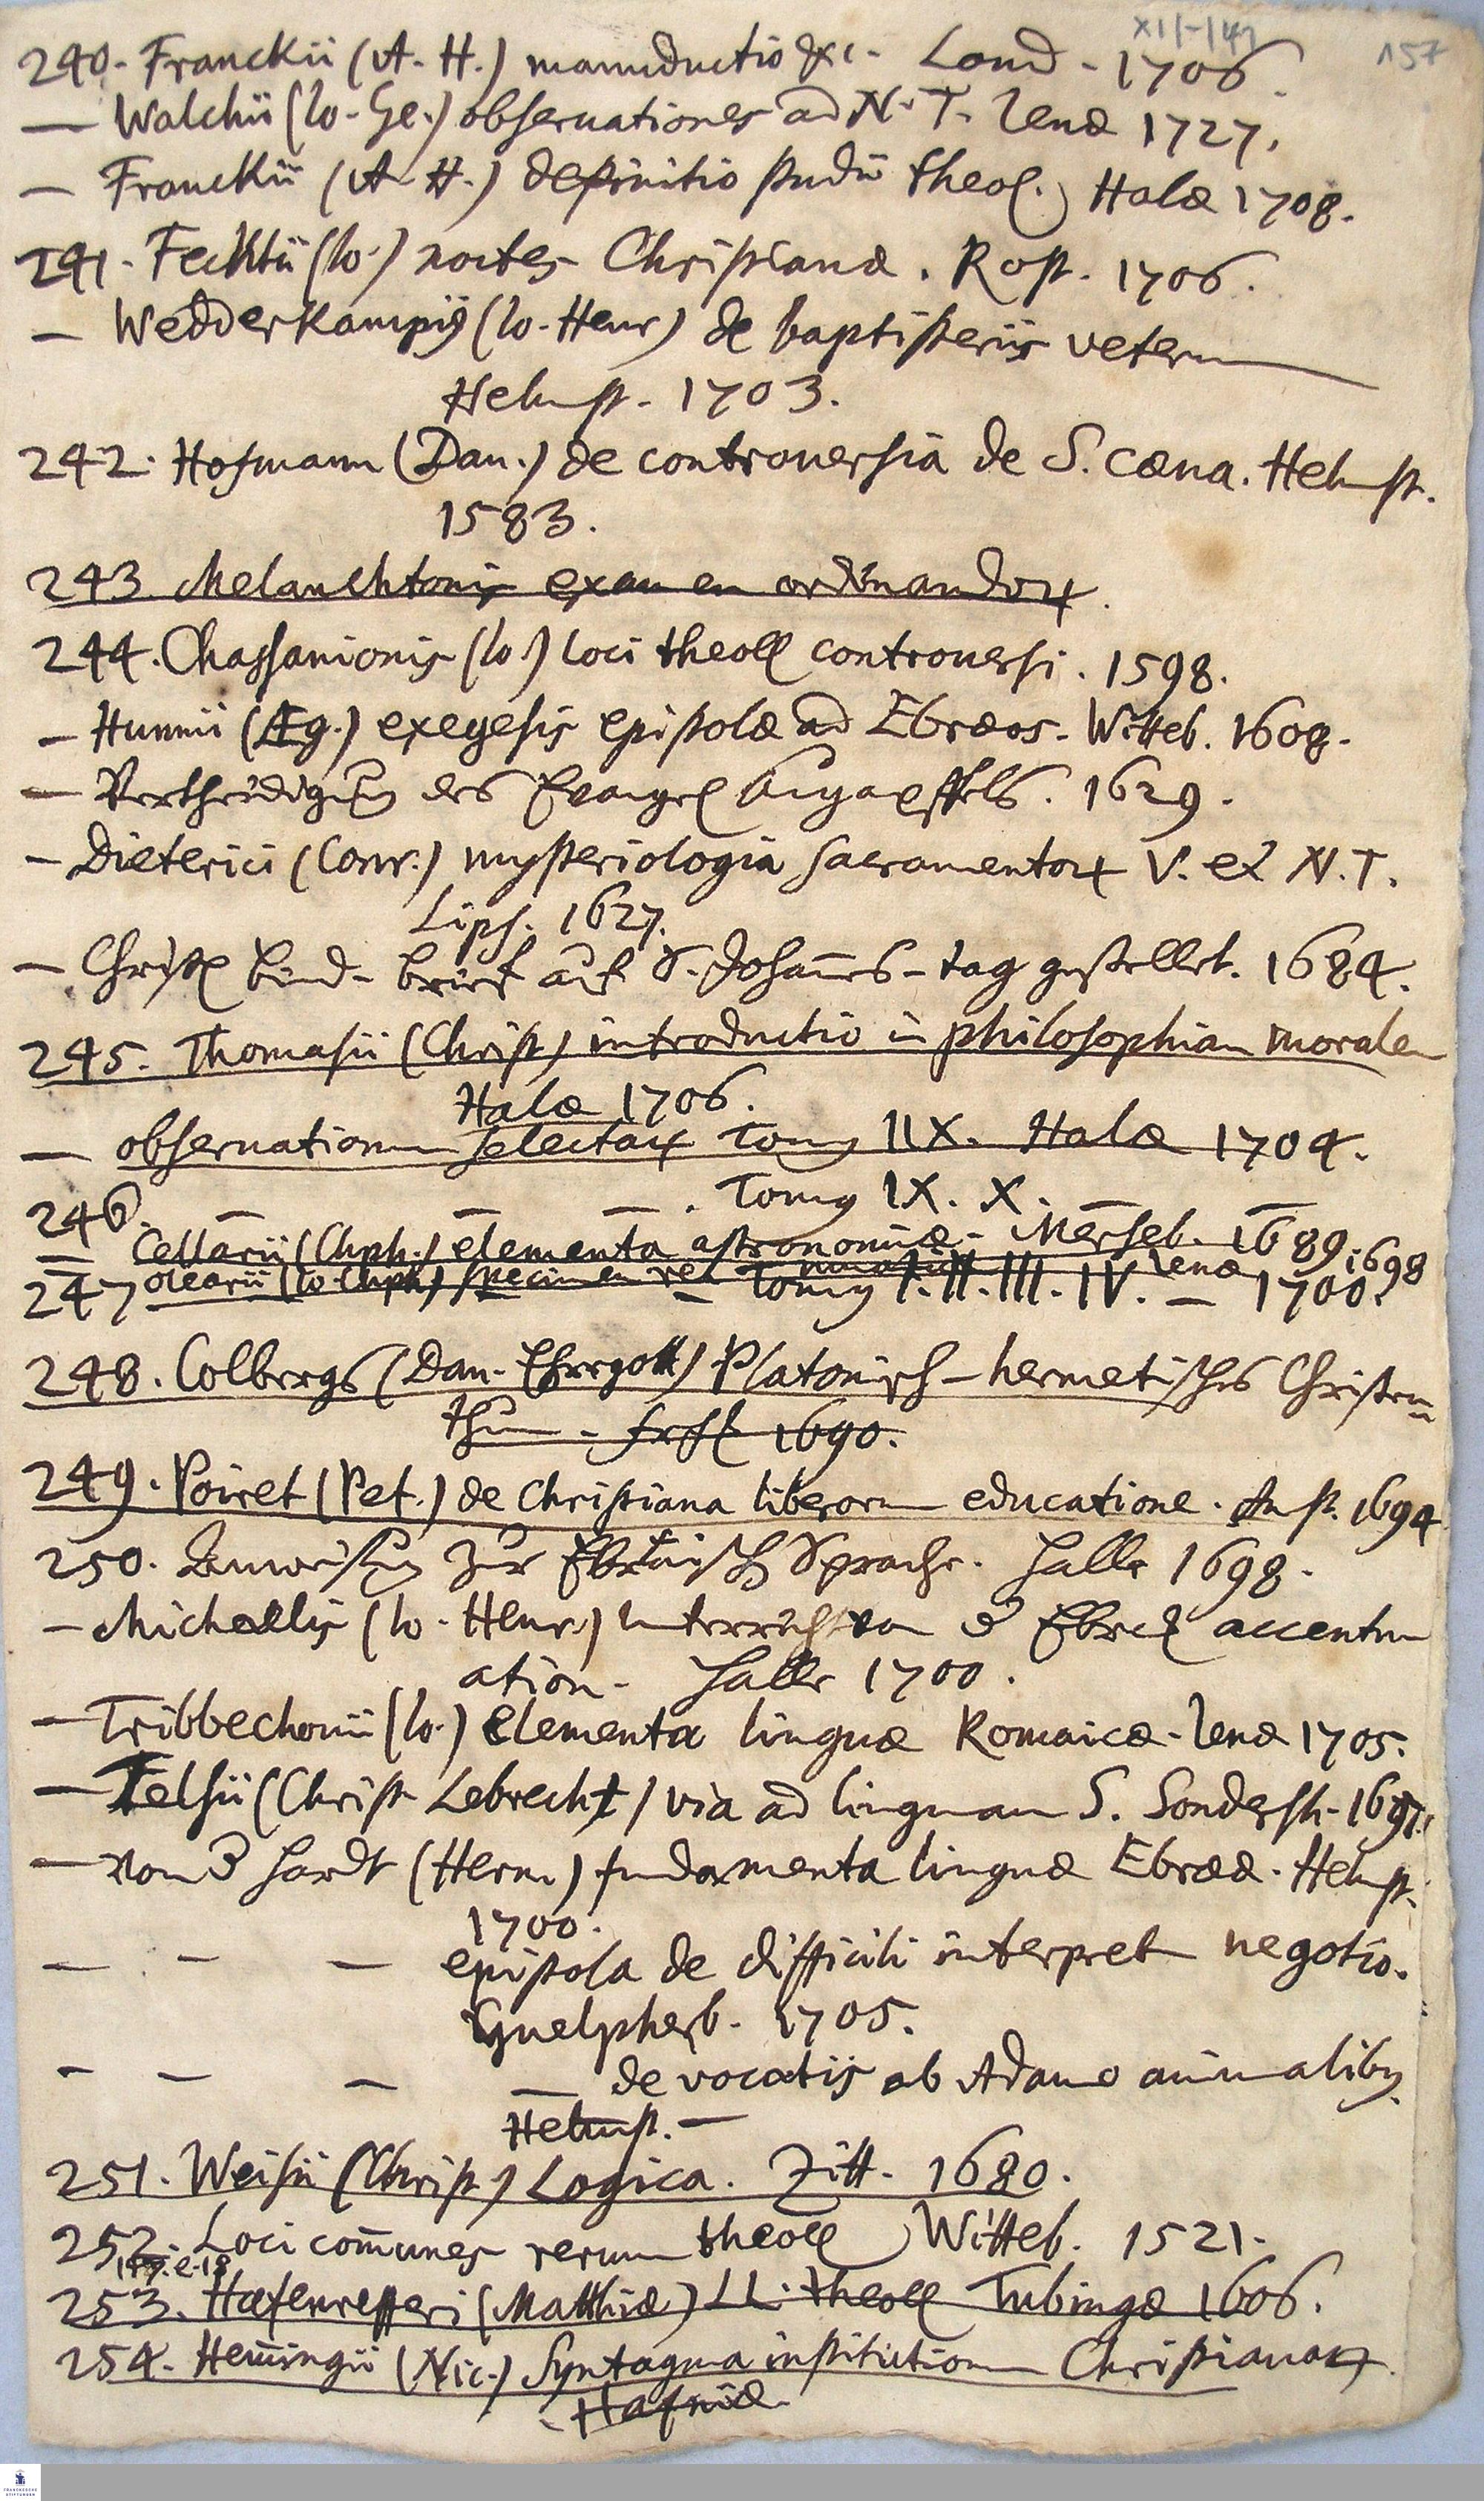 XII-141
157
240. Franckii (A. H.) manuductio &c. Lond. 1706.
— Walchii (Io. Ge.) obseruationes ad N. T. Ienæ 1727.
— Franckii (A. H.) definitio studii theol. Halæ 1708.
241. Fechtii (Io.) noctes Christianæ. Rost. 1706.
— Wedderkampii (Io. Henr) de baptisteriis veterum
Helmst. 1703.
242. Hofmann (Dan.) de controuersia de S. cœna. Helmst.
1583.
243. Melanchtonis examen ordinandoꝝ.
244. Chassanionis (Io.) loci theoll controuersi. 1598.
— Hunnii (Æg.) exegesis epistolæ ad Ebræos. Witteb. 1608.
— Vertheidigung des Evangel Augapffels. 1629.
— Dieterici (Conr.) mysteriologia sacramentoꝝ V. et N. T.
Lips. 1627.
— Christl Bind-brief auf S. Johañes-tag gestellet. 1684.
245. Thomasii (Christ) introductio in philosophiam moralem
Halæ 1706.
— obseruationum selectaꝝ tomꝰ IIX. Halæ 1704.
246. — — — . Tomꝰ IX. X. — —
— Cellarii (Chph.) elementa astronomiæ. Merseb. 1689.
Olearii (Io. Chph) specimen rei Ienæ 1698
247 — Tomꝰ I. II. III. IV. — 1700.
248. Colbergs (Dan. Ehregott) Platonisch-hermetisches Christen=
thum. Frfl 1690.
249. Poiret (Pet.) de Christiana liberorum educatione. Amst. 1694
250. Anweisung zur Ebräisch Sprache. Halle 1698.
— Michaelis (Io. Henr.) Unterricht von d Ebrä accentu
ation. Halle 1700.
— Tribbechouii (Io.) elementa linguæ Romaicæ. Ienæ 1705.
— Felsii (Christ Lebrecht) via ad linguam S. Sondersh.
— von d Hardt (Herm.) fundamenta linguæ Ebrææ. Helmst.
1700.
— — — epistola de difficili interpret negotio.
Guelpherb. 1705.
— — — — de vocatis ab Adamo animalibꝰ.
Helmst. —
251. Weisii (Christ) Logica. Zitt. 1680.
252. Loci com̃unes rerum theoll Witteb. 1521.
253. Hafenrefferi (Matthiæ) LL. theoll Tubingæ 1606.
254. Hem̃ingii (Nic.) Syntagma institutionum Christianaꝝ
Hafniæ
FRANCKESCHE
STIFTUNGEN